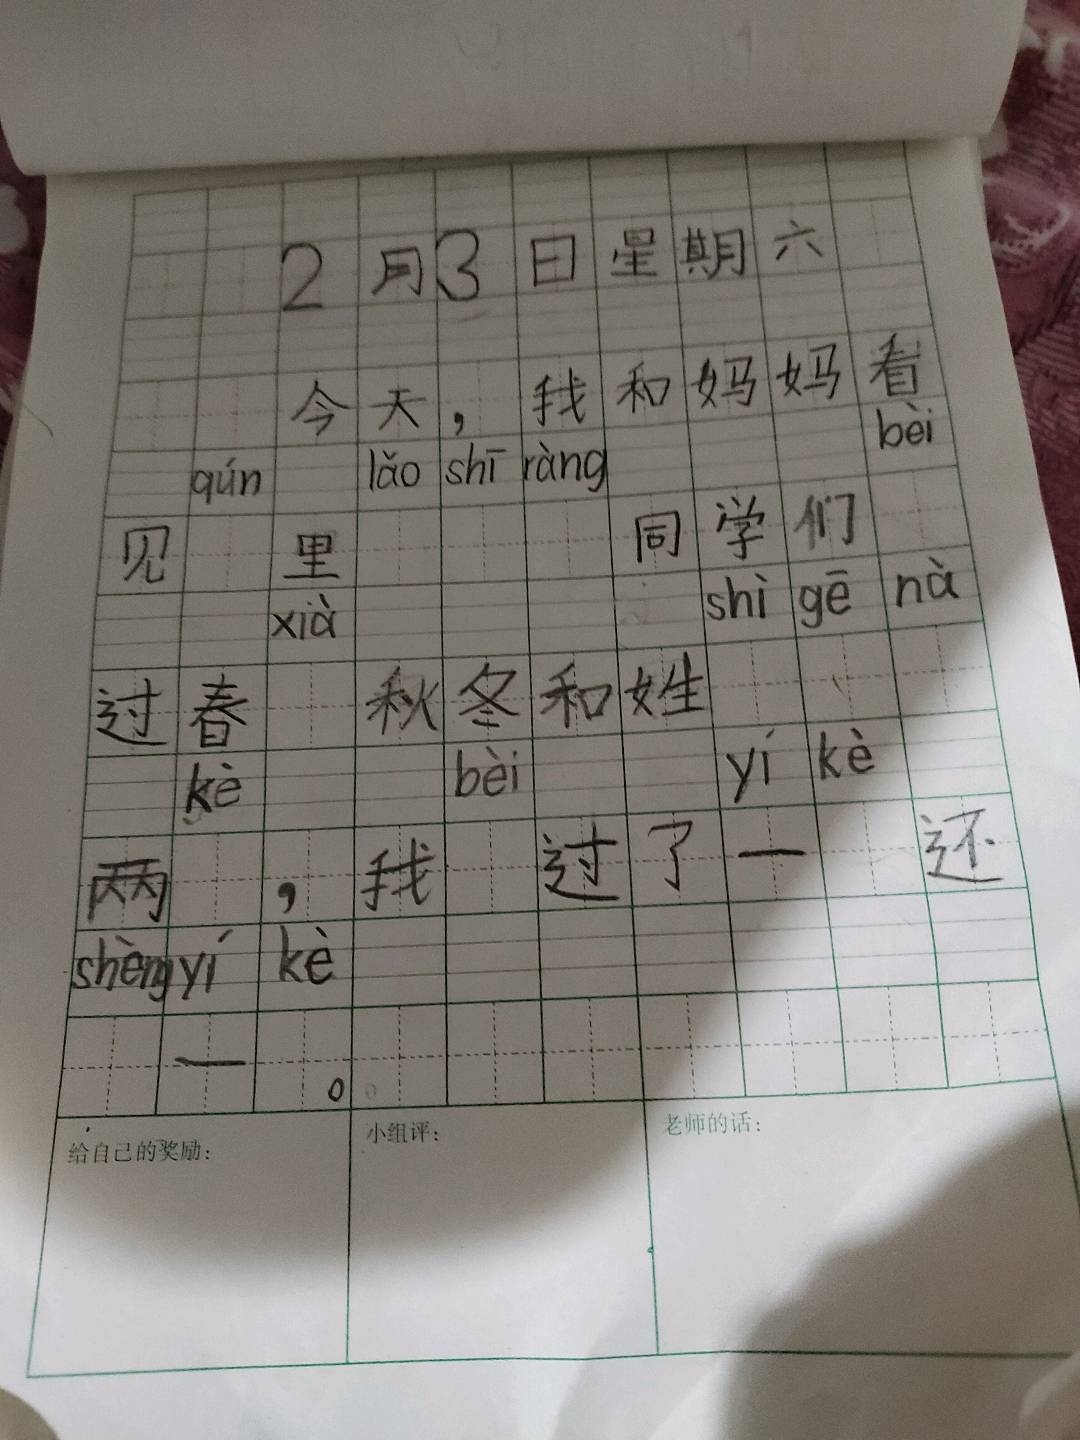 2月3日星期六
今天，我和妈妈看
qún lǎo shī ràng bèi
见 里 同学们
xià shì gē nà
过春 秋冬和姓
kè bèi yí kè
两 ，我 过了一 还
shèng yí kè
一 。
给自己的奖励： 小组评： 老师的话：